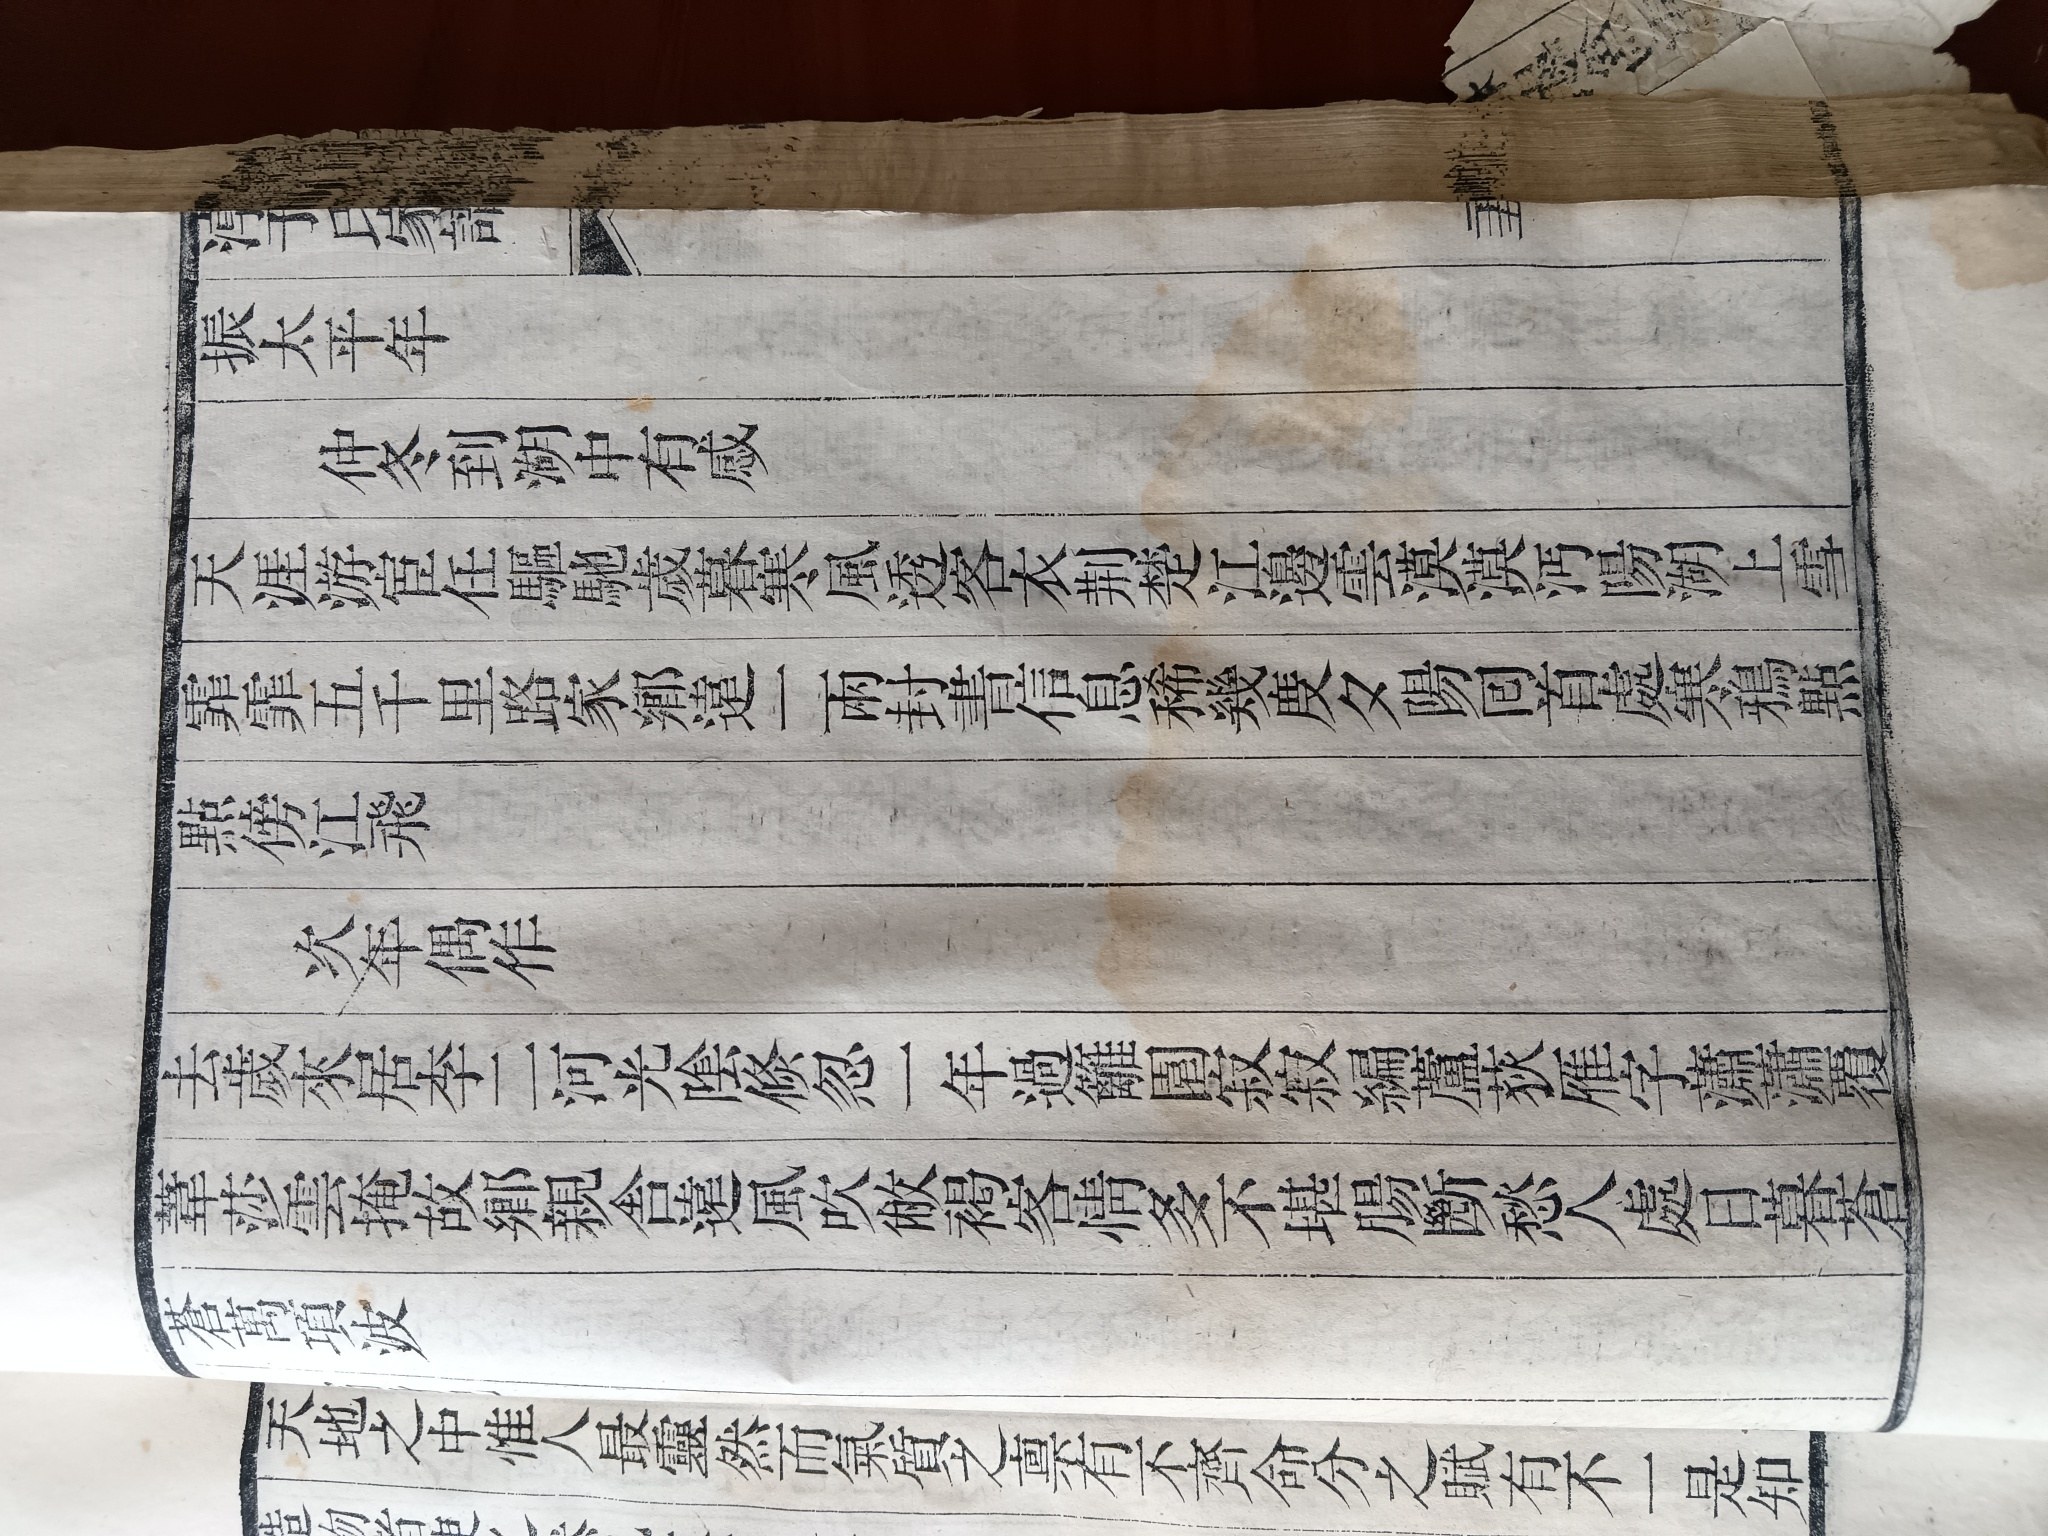 淳于氏家譜
振太平年
仲冬到湖中有感
天涯游宦任驅馳歲暮寒風透客衣荆楚江邊雲漠漠沔陽湖上雪
霏霏五千里路家鄉遠一兩封書信息稀幾度夕陽回首處寒鴉點
點傍江飛
次年偶作
去歲來居李二河光陰倏忽一年過籬園寂寂編蘆荻雁字蕭蕭覆
葦莎雲掩故鄉親舍遠風吹敝褐客情多不堪腸斷愁人處日暮蒼
蒼萬頃波
天地之中惟人最靈然而氣質之禀有不齊命分之賦有不一是知